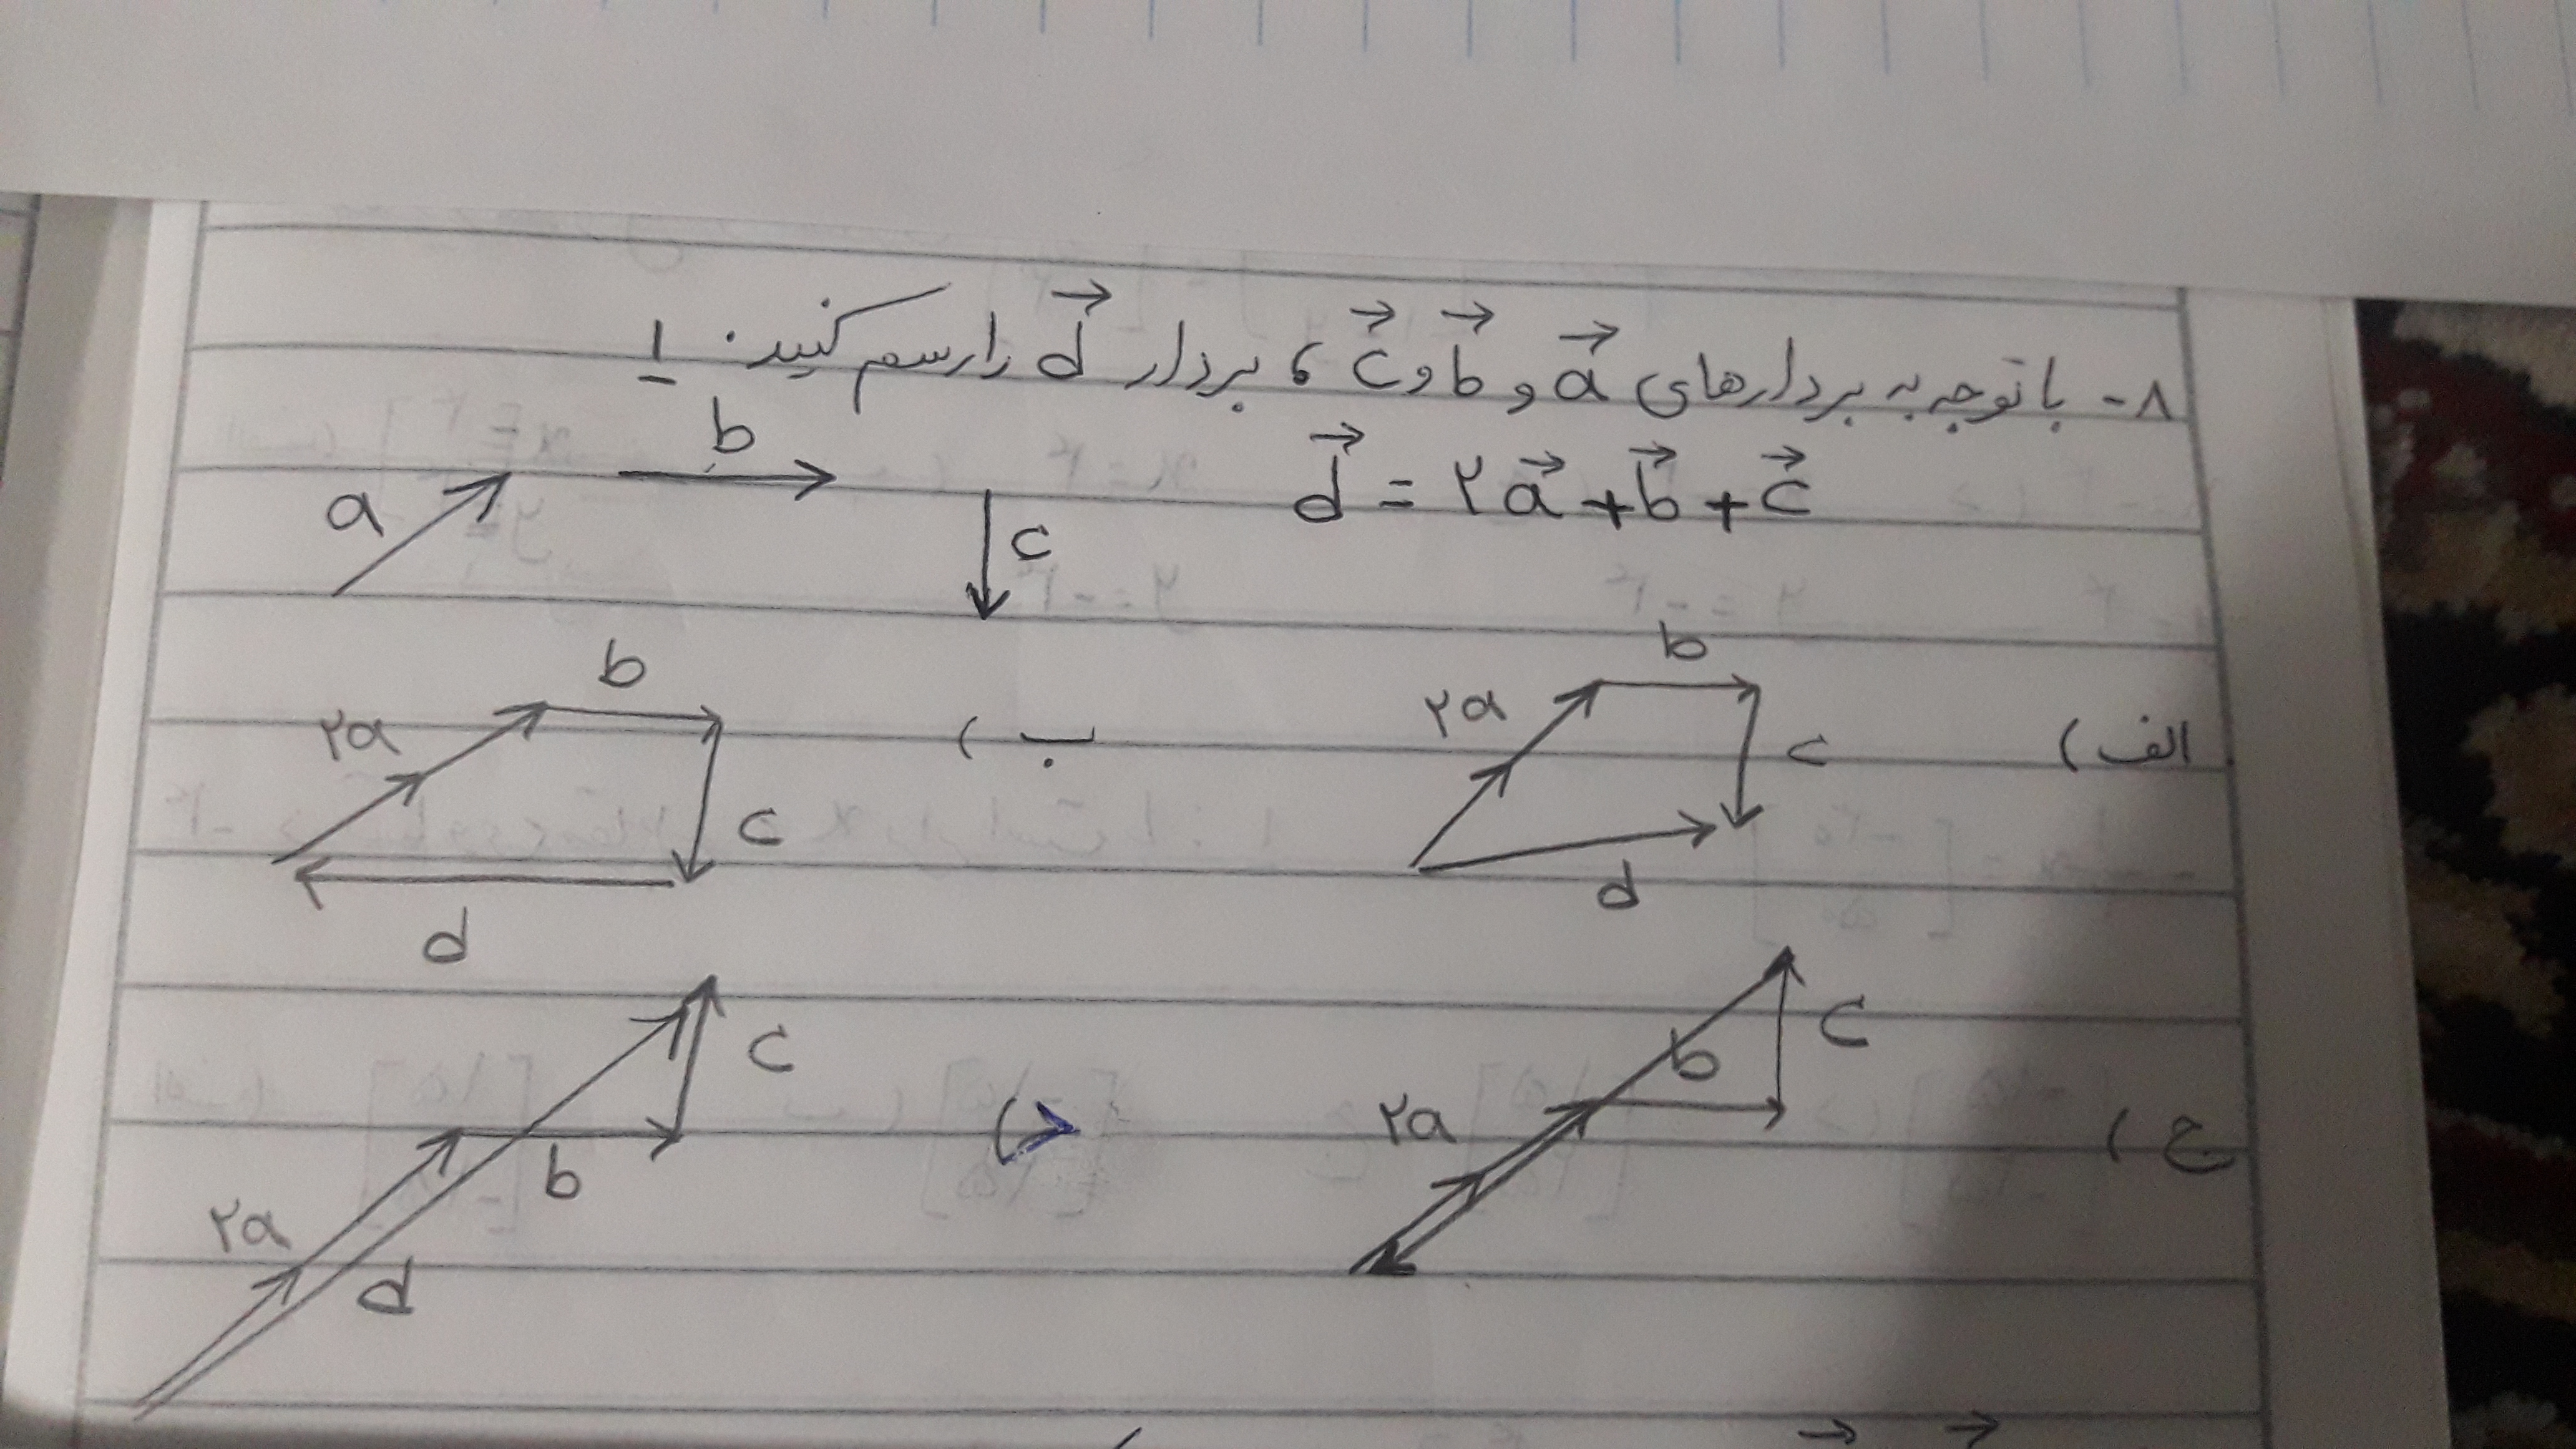 ۸- باتوجه به بردارهای a⃗ و b⃗ و c⃗ ، بردار d⃗ را رسم کنید. ۱-
a b c d⃗ = ۲a⃗ + b⃗ + c⃗
الف) ۲a b c d
ب) ۲a b c d
ج) ۲a b c
د) ۲a b c d